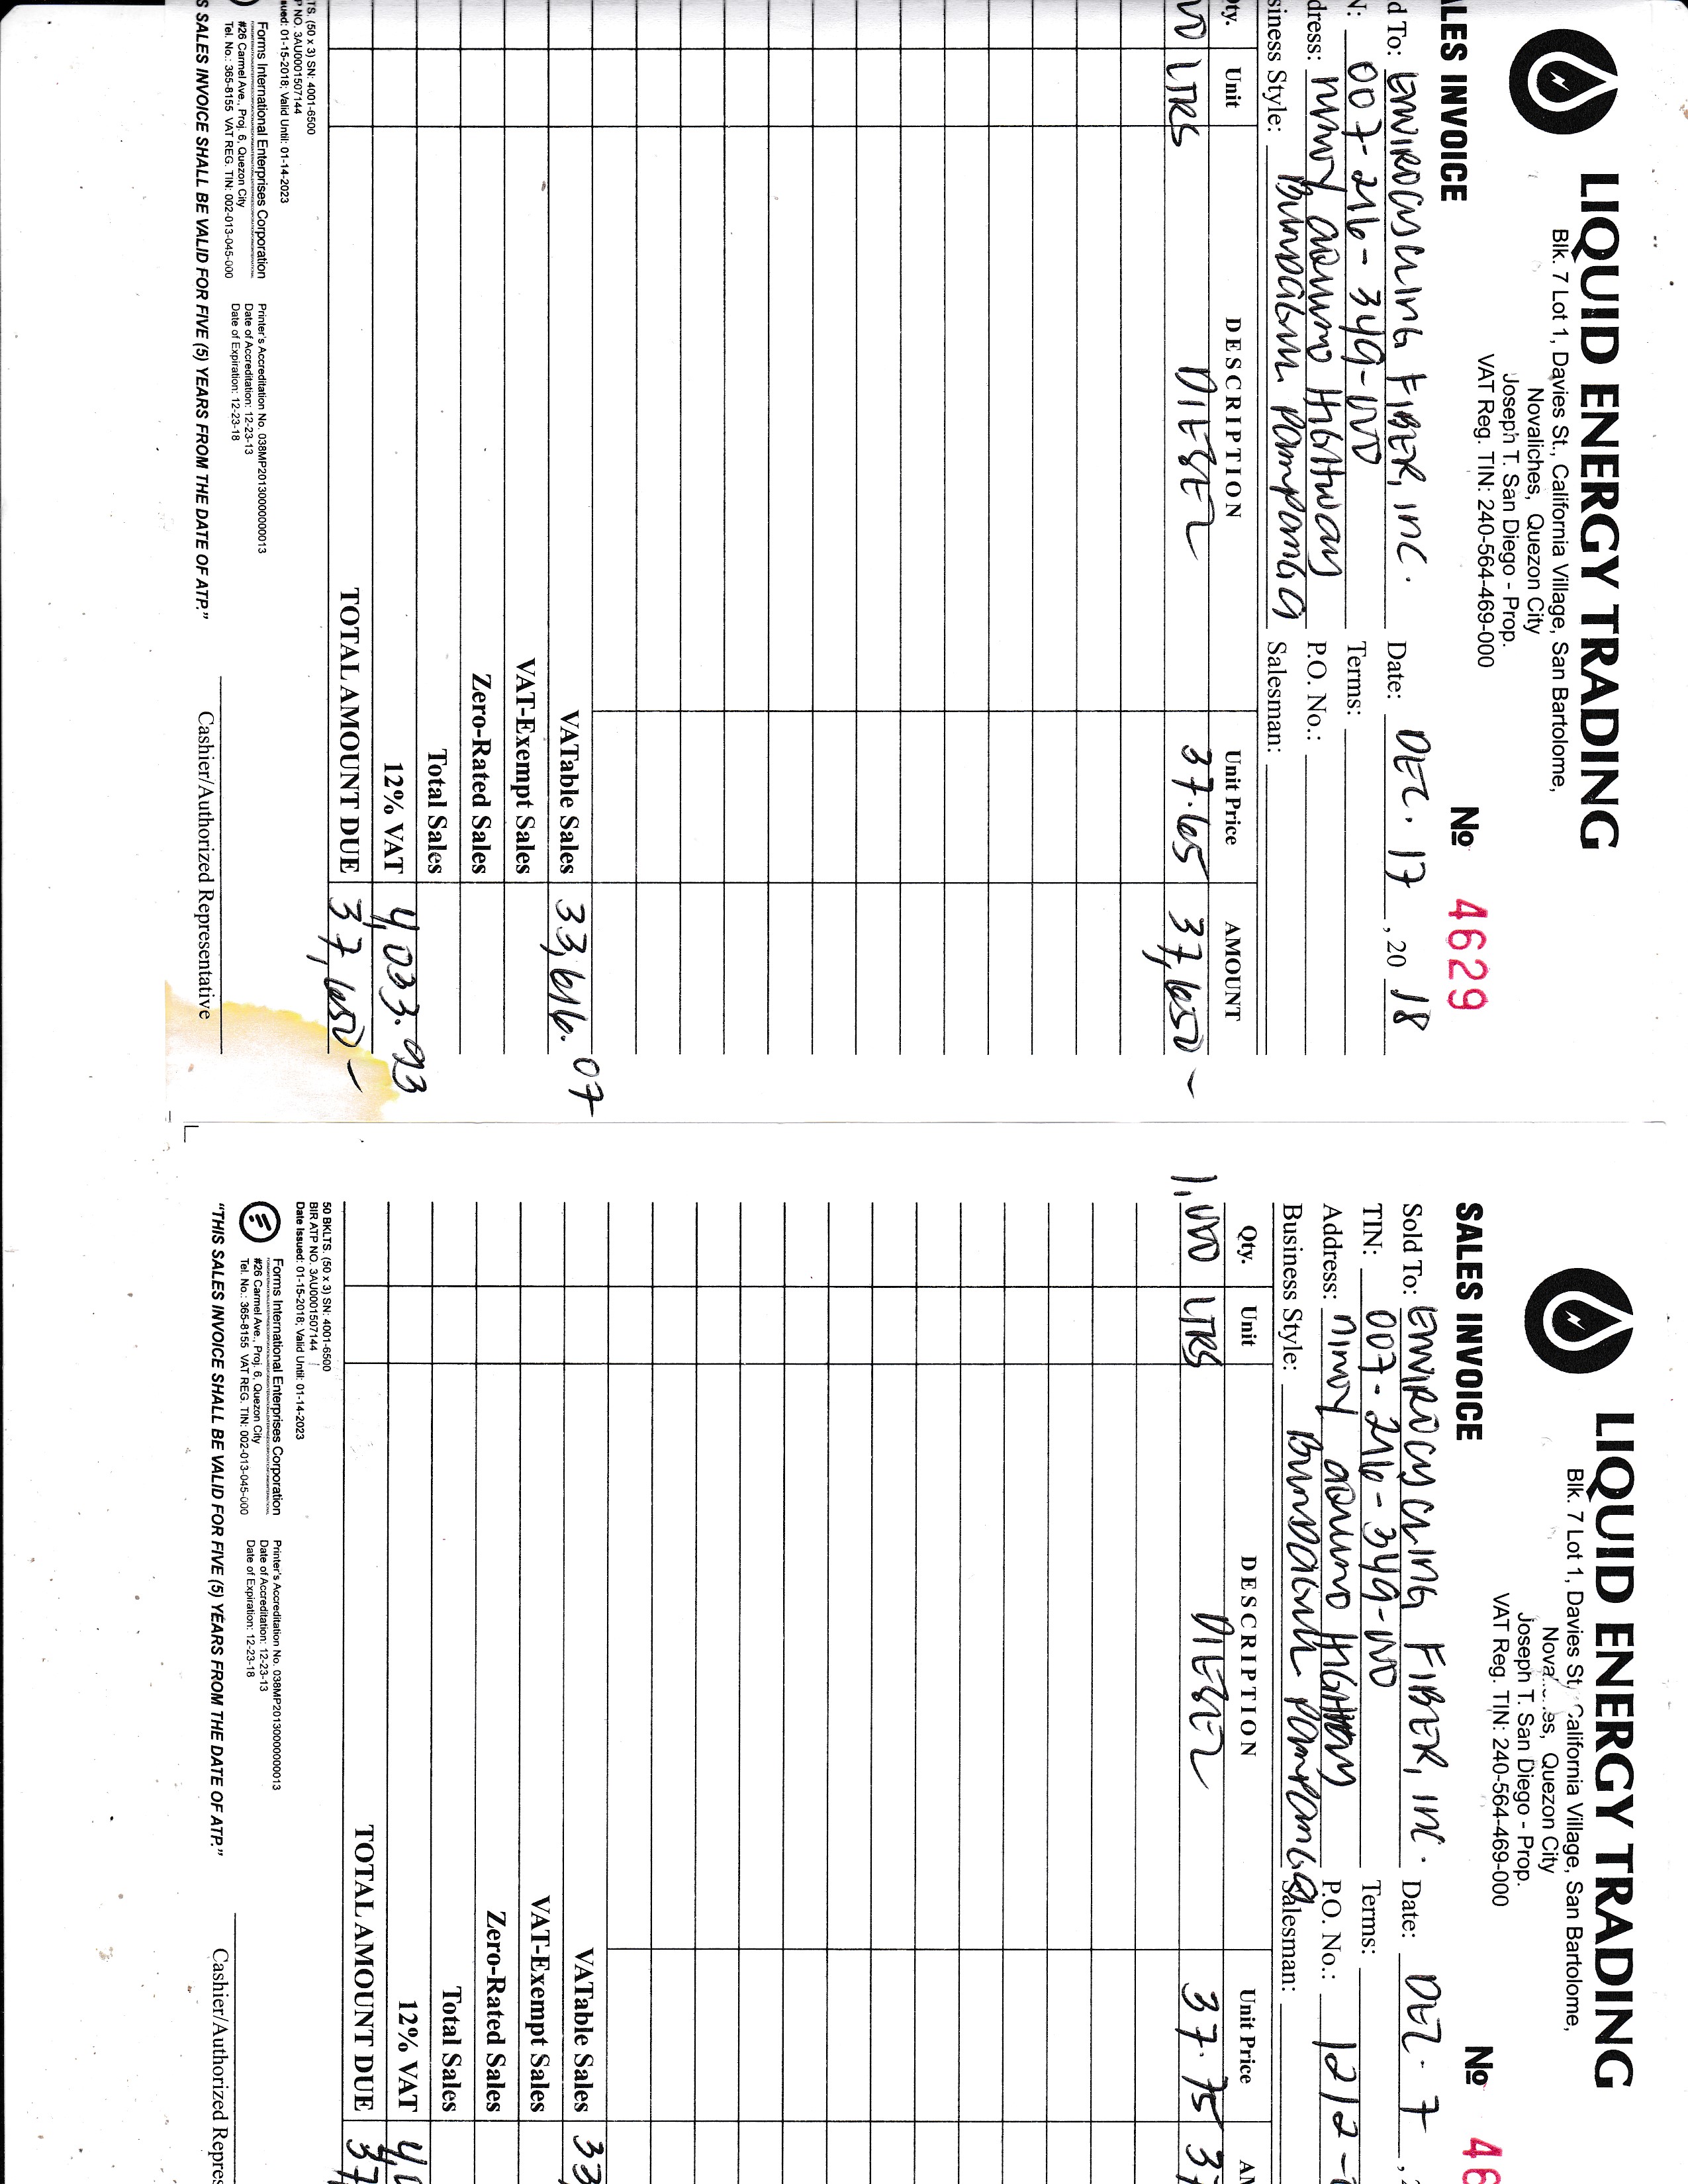 LIQUID ENERGY TRADING
Blk. 7 Lot 1, Davies St., California Village, San Bartolome,
Novaliches, Quezon City
Joseph T. San Diego - Prop.
VAT Reg. TIN: 240-564-469-000
ALES INVOICE
№ 4629
d To: ENVIROCYCLING FIBER, INC.
Date: DEC. 17, 20 18
N: 007-216-349-000
Terms:
dress: NINOY AQUINO HIGHWAY
P.O. No.:
siness Style:
Salesman:
Qty. Unit DESCRIPTION Unit Price AMOUNT
LTRS DIESEL 37.65 37,650 -
VATable Sales 33,616.07
VAT-Exempt Sales
Zero-Rated Sales
Total Sales
12% VAT 4,033.93
TOTAL AMOUNT DUE 37,650 -
TS. (50 x 3) SN: 4001-6500
P NO. 3AU0001507144
sued: 01-15-2018; Valid Until: 01-14-2023
Forms International Enterprises Corporation
#26 Carmel Ave., Proj. 6, Quezon City
Tel. No.: 365-8155 VAT REG. TIN: 002-013-045-000
Printer's Accreditation No. 038MP20130000000013
Date of Accreditation: 12-23-13
Date of Expiration: 12-23-18
S SALES INVOICE SHALL BE VALID FOR FIVE (5) YEARS FROM THE DATE OF ATP."
Cashier/Authorized Representative
LIQUID ENERGY TRADING
Blk. 7 Lot 1, Davies St., California Village, San Bartolome,
Quezon City
Joseph T. San Diego - Prop.
VAT Reg. TIN: 240-564-469-000
SALES INVOICE
№ 46
Sold To: ENVIROCYCLING FIBER, INC.
Date: DEC. 7,
TIN: 007-216-349-000
Terms:
Address: NINOY AQUINO HIGHWAY
P.O. No.: 1212-
Business Style:
Salesman:
Qty. Unit DESCRIPTION Unit Price AM
1,000 LTRS DIESEL 37.75 37
VATable Sales 33
VAT-Exempt Sales
Zero-Rated Sales
Total Sales
12% VAT 4,0
TOTAL AMOUNT DUE 37
50 BKLTS. (50 x 3) SN: 4001-6500
BIR ATP NO. 3AU0001507144
Date Issued: 01-15-2018; Valid Until: 01-14-2023
Forms International Enterprises Corporation
#26 Carmel Ave., Proj. 6, Quezon City
Tel. No.: 365-8155 VAT REG. TIN: 002-013-045-000
Printer's Accreditation No. 038MP20130000000013
Date of Accreditation: 12-23-13
Date of Expiration: 12-23-18
"THIS SALES INVOICE SHALL BE VALID FOR FIVE (5) YEARS FROM THE DATE OF ATP."
Cashier/Authorized Repres